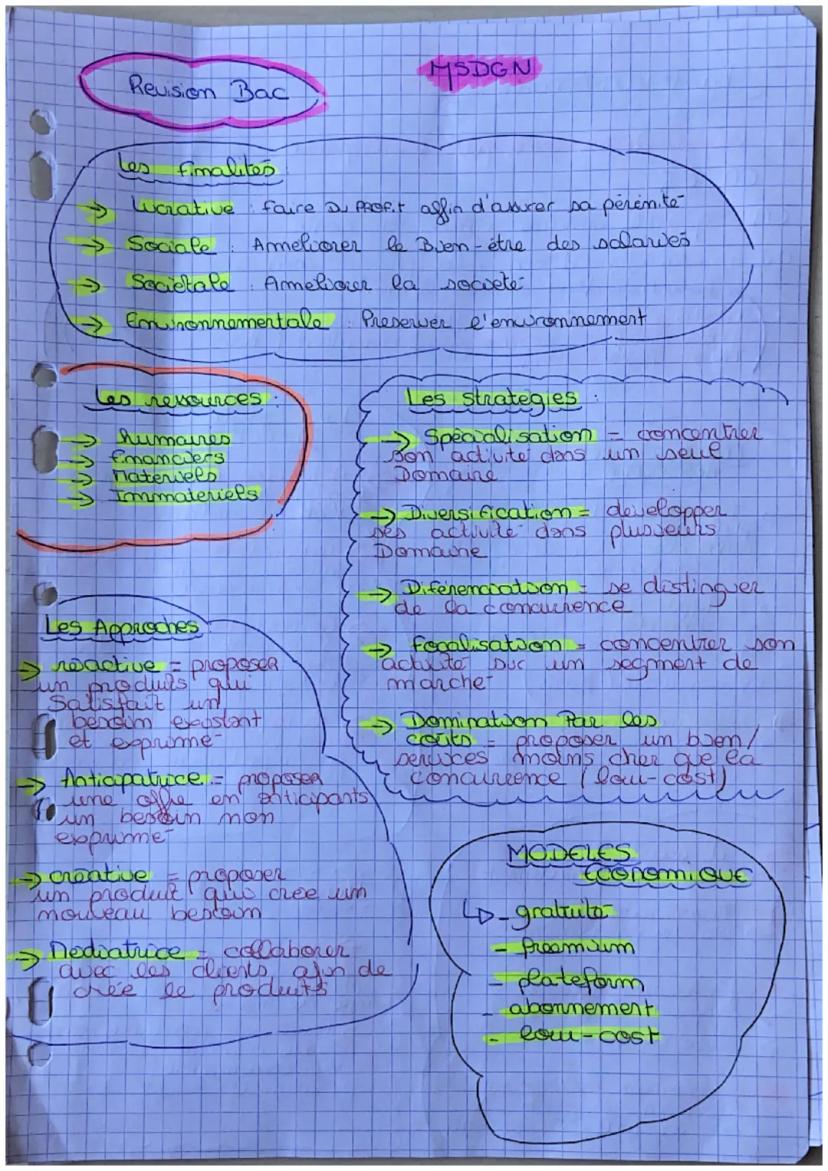 Revision Bac
MSDGN
Les finalités
→ Lucrative : faire Du PROFIT affin d'assurer sa pérénité
→ Sociale : Ameliorer le Bien-être des salariés
→ Sociétale : Ameliorer la société
→ Environnementale : Preserver l'environnement
Les ressources :
→ humaines
→ financiers
→ Matériels
→ Immateriels
Les strategies :
→ Spécialisation = concentrer
son activité dans un seul
Domaine
→ Diversification = developper
ses activité dans plusseurs
Domaine
→ Diférenciation = se distinguer
de la concurence
→ focalisation = concentrer son
activité sur un segment de
marché
→ Domination Par les
couts = proposer un bien/
services moins cher que la
concurrence (low-cost)
Les Approches :
→ réactive = proposer
un produits qui
satisfait un
besoin existant
et exprimé
→ Anticipatrice = proposer
une offre en anticipants
un besoin non
exprimé
→ créative = proposer
un produit qui crée un
nouveau besoin
→ Médiatrice = collaborer
avec les clients afin de
crée le produits
MODELES
ECONOMIQUE
↳ - gratuité
- freemium
- plateform
- abonnement
- low-cost